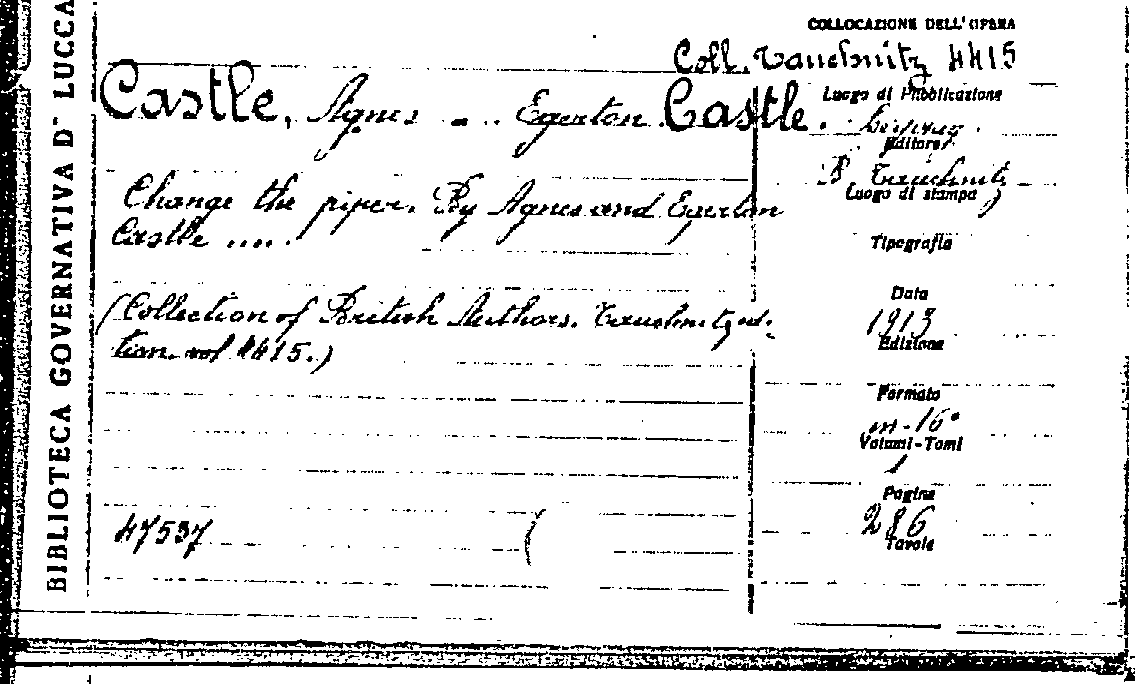 BIBLIOTECA GOVERNATIVA DI LUCCA
COLLOCAZIONE DELL'OPERA
Coll. Tauchnitz 4415
Castle, Agnes - .. Egerton Castle.
Luogo di Pubblicazione
Leipzig
Editore
B. Tauchnitz
Luogo di stampa
Change the piper. By Agnes and Egerton
Castle .....
Tipografia
Data
1913
Edizione
(Collection of British Authors. Tauchnitz edi-
tion. vol 4415.)
Formato
in-16°
Volumi-Tomi
1
Pagine
286
Tavole
47537